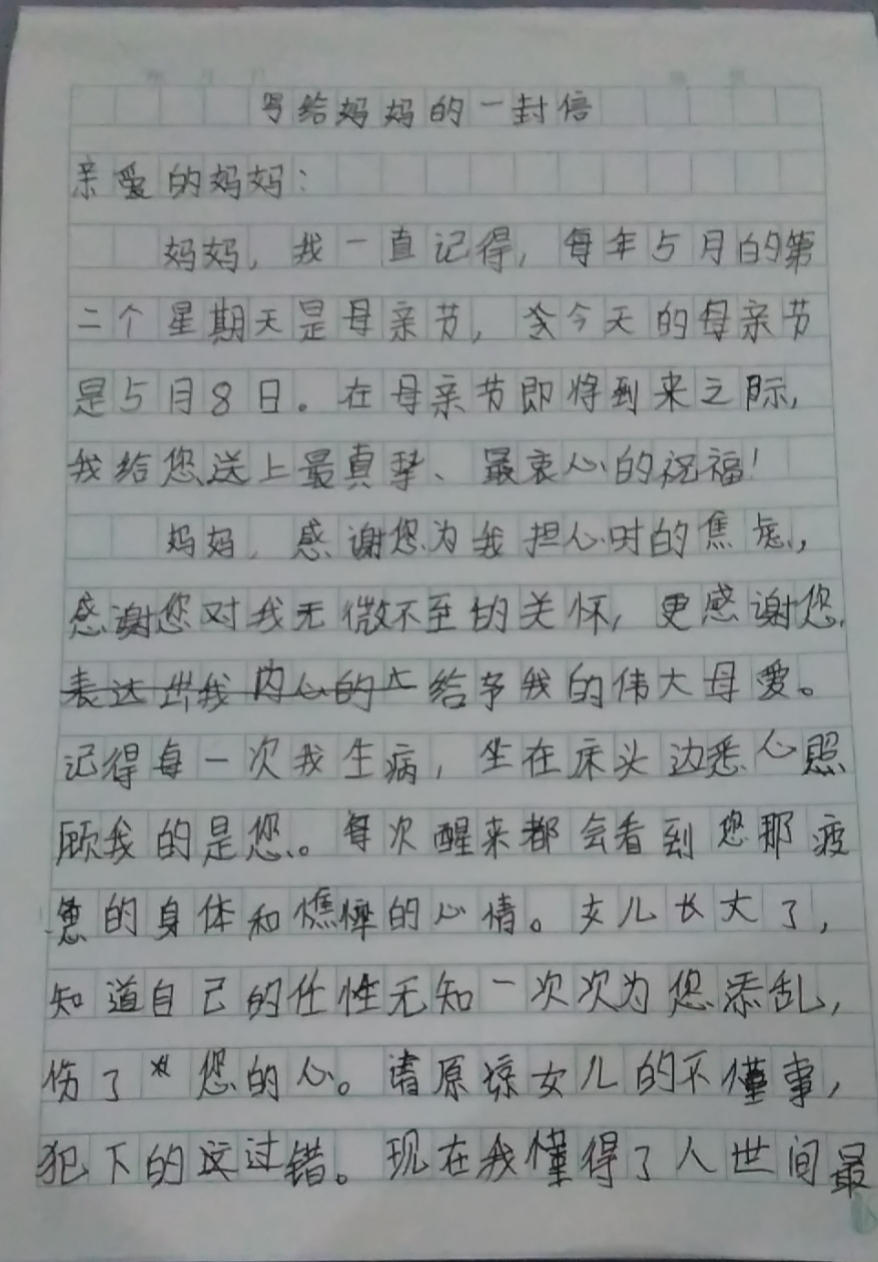 写给妈妈的一封信
亲爱的妈妈：
妈妈，我一直记得，每年5月的第
二个星期天是母亲节，今天的母亲节
是5月8日。在母亲节即将到来之际，
我给您送上最真挚、最衷心的祝福！
妈妈，感谢您为我担心时的焦虑，
感谢您对我无微不至的关怀，更感谢您
表达出我内心的给予我的伟大母爱。
记得每一次我生病，坐在床头边悉心照
顾我的是您。每次醒来都会看到您那疲
惫的身体和憔悴的心情。女儿长大了，
知道自己的任性无知一次次为您添乱，
伤了您的心。请原谅女儿的不懂事，
犯下的这过错。现在我懂得了人世间最